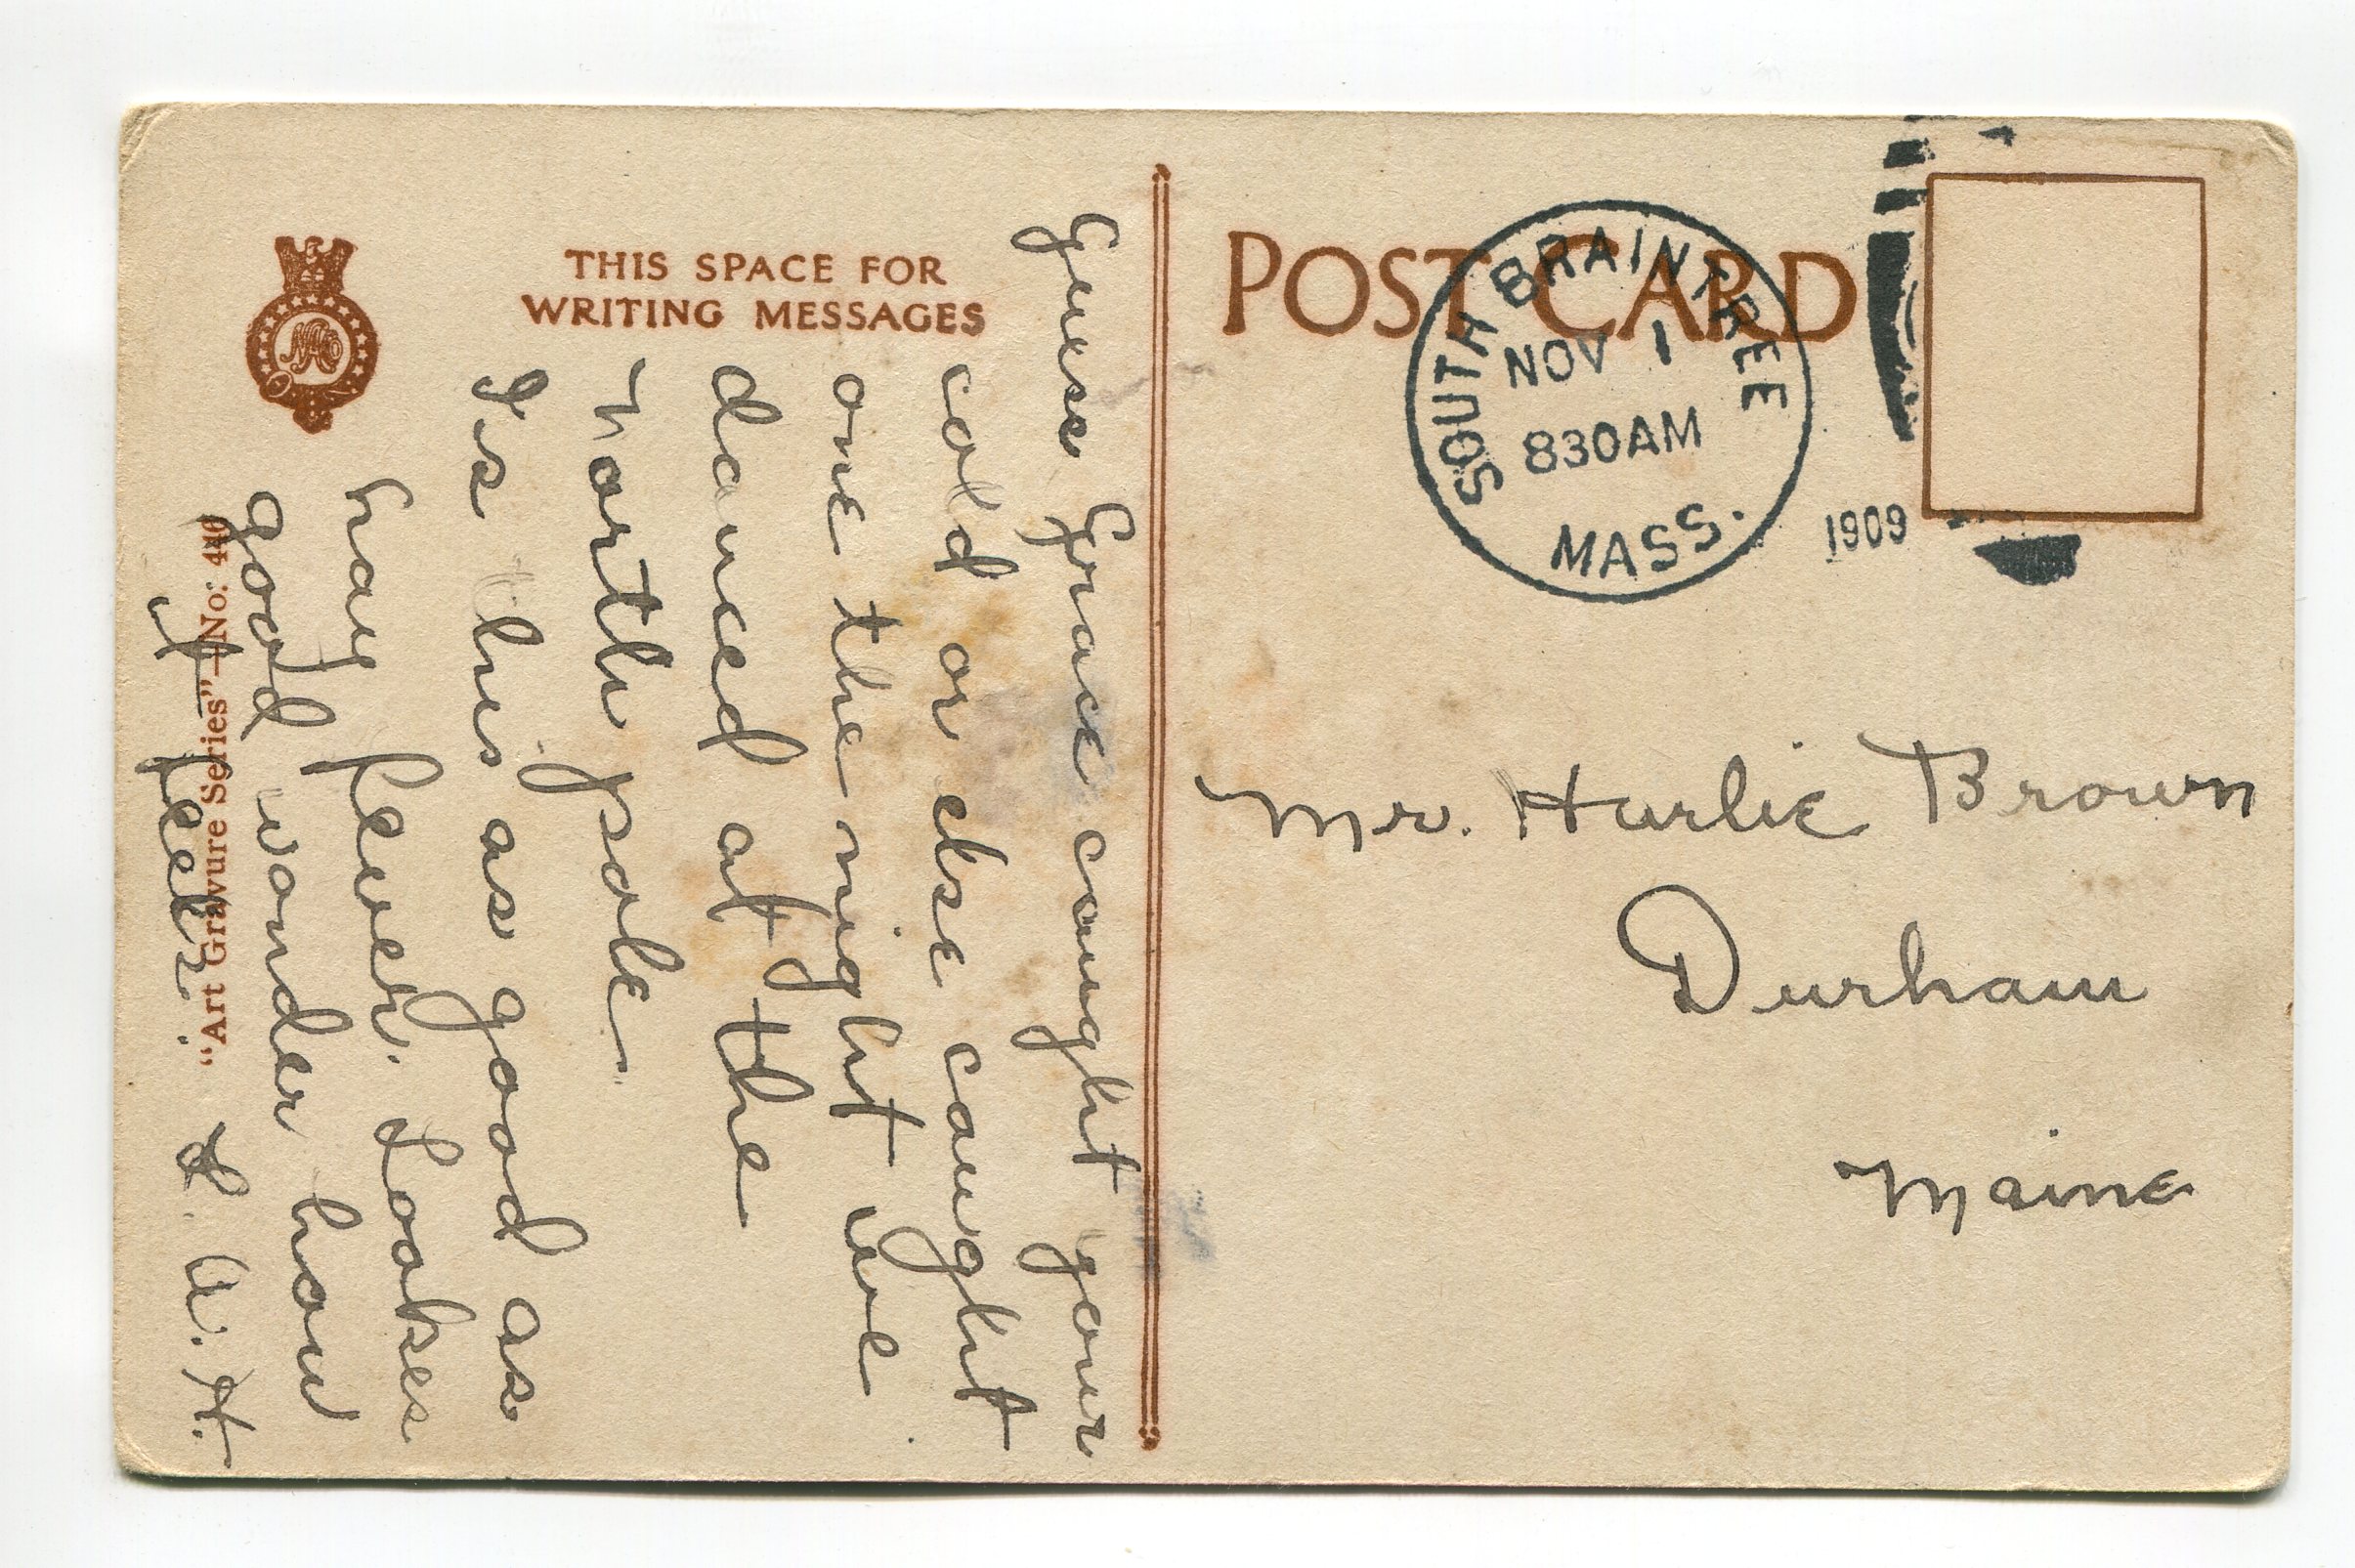 THIS SPACE FOR
WRITING MESSAGES
Guess Grace caught your
cold or else caught
one the night we
danced at the
North pole
Is his as good as
hay fever. Lookes
good wonder how
it feels. L. A. H.
"Art Gravure Series"—No: 440
POST CARD
SOUTH BRAINTREE
NOV 1
830AM
MASS.
1909
Mr. Harlie Brown
Durham
Maine